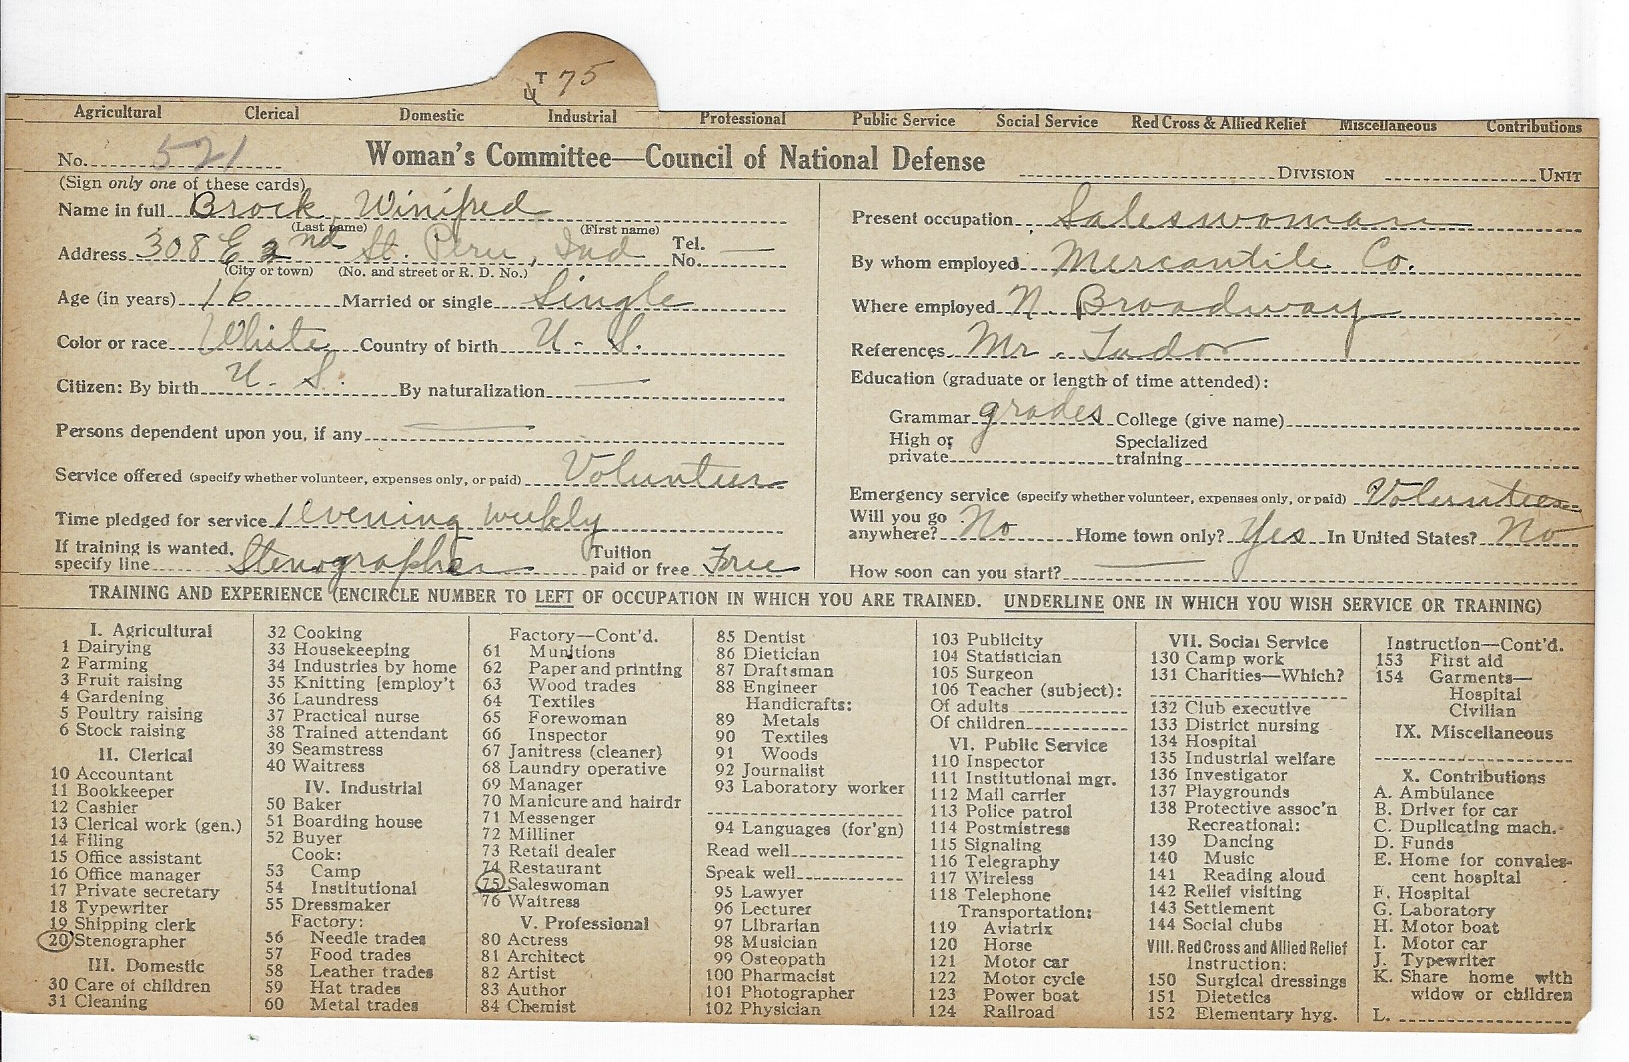 T 75
U
Agricultural Clerical Domestic Industrial Professional Public Service Social Service Red Cross & Allied Relief Miscellaneous Contributions
No. 521 Woman's Committee—Council of National Defense DIVISION UNIT
(Sign only one of these cards)
Name in full Brock, Winifred
(Last name) (First name)
Address 308 E 2nd St. Peru, Ind Tel. No. —
(City or town) (No. and street or R. D. No.)
Age (in years) 16 Married or single Single
Color or race White Country of birth U. S.
Citizen: By birth U. S. By naturalization —
Persons dependent upon you, if any —
Service offered (specify whether volunteer, expenses only, or paid) Volunteer
Time pledged for service 1 evening weekly
If training is wanted, specify line Stenographer Tuition paid or free Free
Present occupation Saleswoman
By whom employed Mercantile Co.
Where employed N. Broadway
References Mr. Tudor
Education (graduate or length of time attended):
Grammar grades College (give name)
High or private Specialized training
Emergency service (specify whether volunteer, expenses only, or paid) Volunteer
Will you go anywhere? No Home town only? Yes In United States? No
How soon can you start? —
TRAINING AND EXPERIENCE (ENCIRCLE NUMBER TO LEFT OF OCCUPATION IN WHICH YOU ARE TRAINED. UNDERLINE ONE IN WHICH YOU WISH SERVICE OR TRAINING)
I. Agricultural
1 Dairying
2 Farming
3 Fruit raising
4 Gardening
5 Poultry raising
6 Stock raising
II. Clerical
10 Accountant
11 Bookkeeper
12 Cashier
13 Clerical work (gen.)
14 Filing
15 Office assistant
16 Office manager
17 Private secretary
18 Typewriter
19 Shipping clerk
20 Stenographer
III. Domestic
30 Care of children
31 Cleaning
32 Cooking
33 Housekeeping
34 Industries by home
35 Knitting [employ't
36 Laundress
37 Practical nurse
38 Trained attendant
39 Seamstress
40 Waitress
IV. Industrial
50 Baker
51 Boarding house
52 Buyer
Cook:
53 Camp
54 Institutional
55 Dressmaker
Factory:
56 Needle trades
57 Food trades
58 Leather trades
59 Hat trades
60 Metal trades
Factory—Cont'd.
61 Munitions
62 Paper and printing
63 Wood trades
64 Textiles
65 Forewoman
66 Inspector
67 Janitress (cleaner)
68 Laundry operative
69 Manager
70 Manicure and hairdr
71 Messenger
72 Milliner
73 Retail dealer
74 Restaurant
75 Saleswoman
76 Waitress
V. Professional
80 Actress
81 Architect
82 Artist
83 Author
84 Chemist
85 Dentist
86 Dietician
87 Draftsman
88 Engineer
Handicrafts:
89 Metals
90 Textiles
91 Woods
92 Journalist
93 Laboratory worker
94 Languages (for'gn)
Read well
Speak well
95 Lawyer
96 Lecturer
97 Librarian
98 Musician
99 Osteopath
100 Pharmacist
101 Photographer
102 Physician
103 Publicity
104 Statistician
105 Surgeon
106 Teacher (subject):
Of adults
Of children
VI. Public Service
110 Inspector
111 Institutional mgr.
112 Mail carrier
113 Police patrol
114 Postmistress
115 Signaling
116 Telegraphy
117 Wireless
118 Telephone
Transportation:
119 Aviatrix
120 Horse
121 Motor car
122 Motor cycle
123 Power boat
124 Railroad
VII. Social Service
130 Camp work
131 Charities—Which?
132 Club executive
133 District nursing
134 Hospital
135 Industrial welfare
136 Investigator
137 Playgrounds
138 Protective assoc'n
Recreational:
139 Dancing
140 Music
141 Reading aloud
142 Relief visiting
143 Settlement
144 Social clubs
VIII. Red Cross and Allied Relief
Instruction:
150 Surgical dressings
151 Dietetics
152 Elementary hyg.
Instruction—Cont'd.
153 First aid
154 Garments—
Hospital
Civilian
IX. Miscellaneous
X. Contributions
A. Ambulance
B. Driver for car
C. Duplicating mach.
D. Funds
E. Home for convales-
cent hospital
F. Hospital
G. Laboratory
H. Motor boat
I. Motor car
J. Typewriter
K. Share home with
widow or children
L.